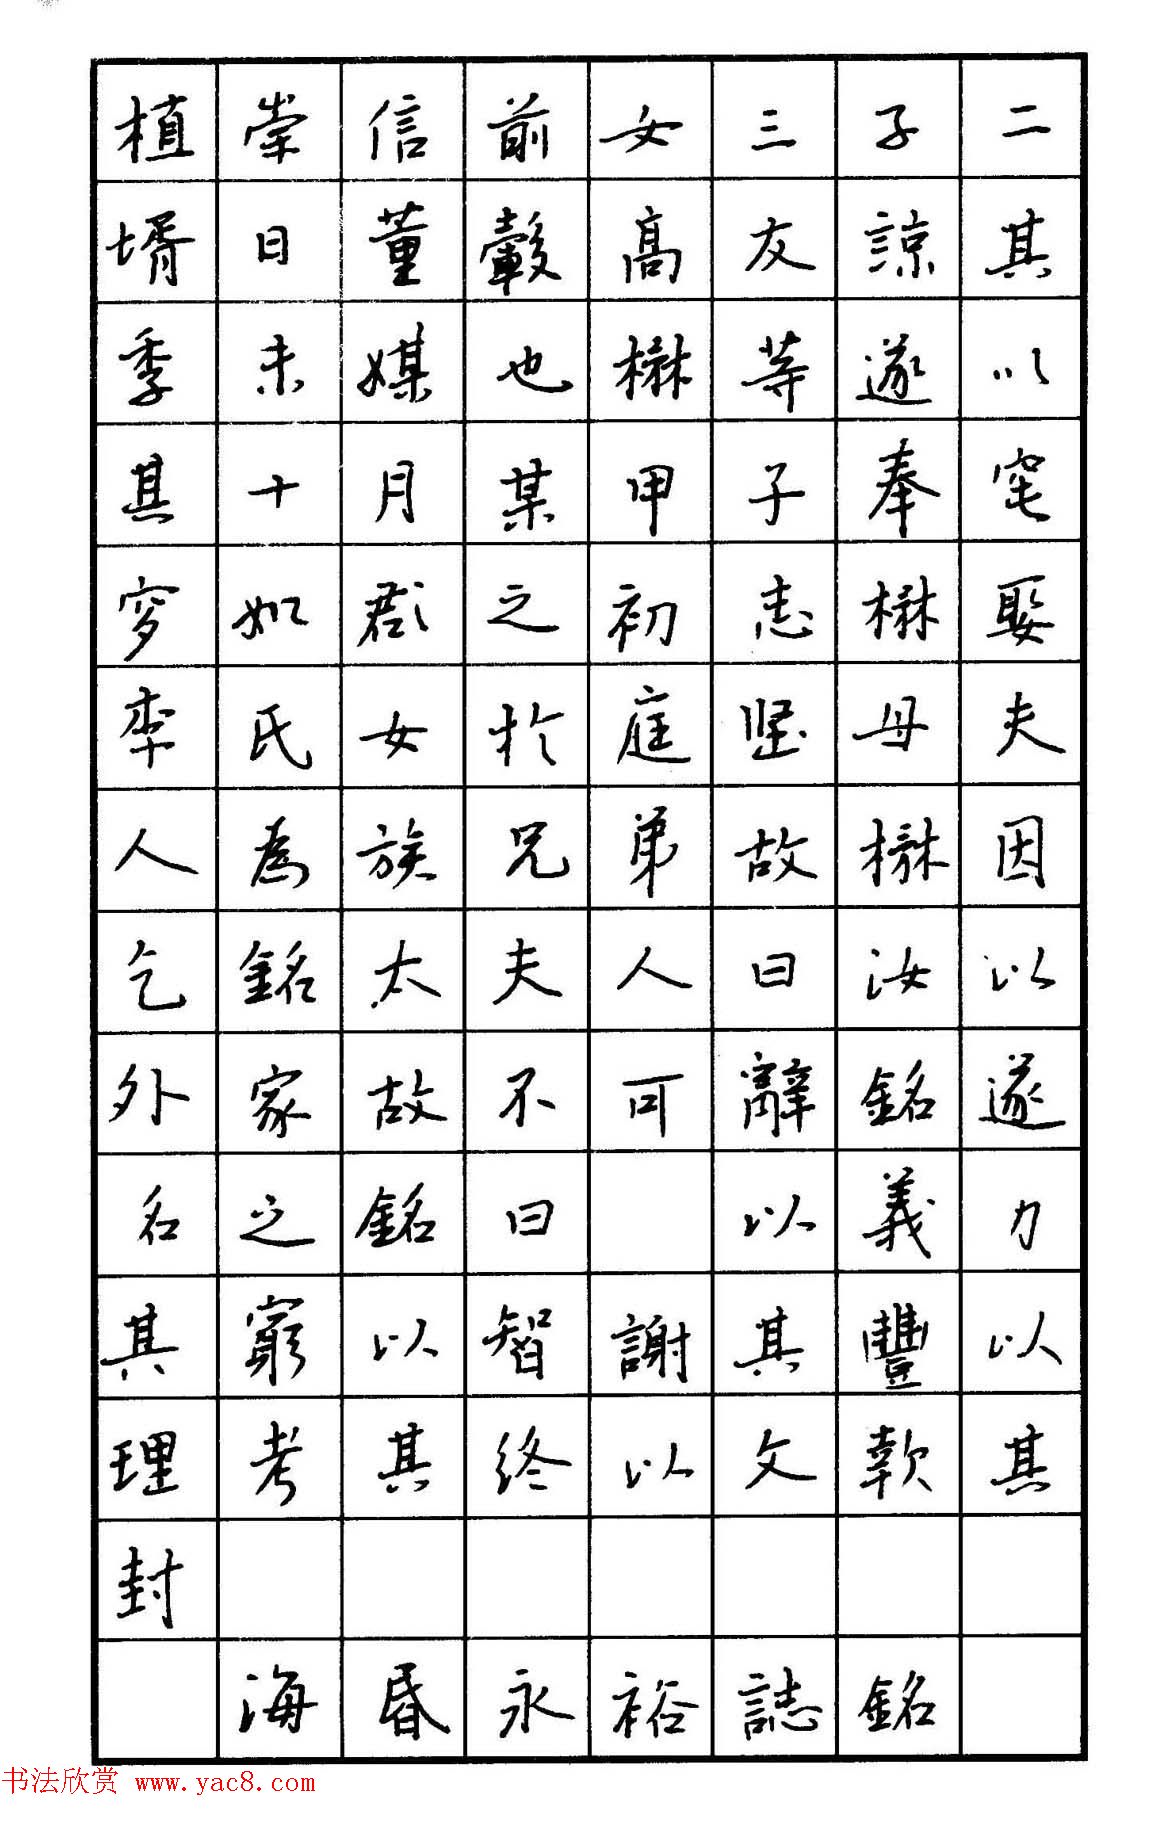 植崇信前女三子二
壻日董轂高友諒其
季未媒也楙等遂以
其十月某甲子奉窀
穸如郡之初志楙娶
李氏女於庭堅母夫
人為族兄弟故楙因
乞銘太夫人曰汝以
外家故不可辭銘遂
名之銘曰 以義力
其窮以智謝其豐以
理考其終以文款其
封
海昏永裕誌銘
书法欣赏 www.yac8.com